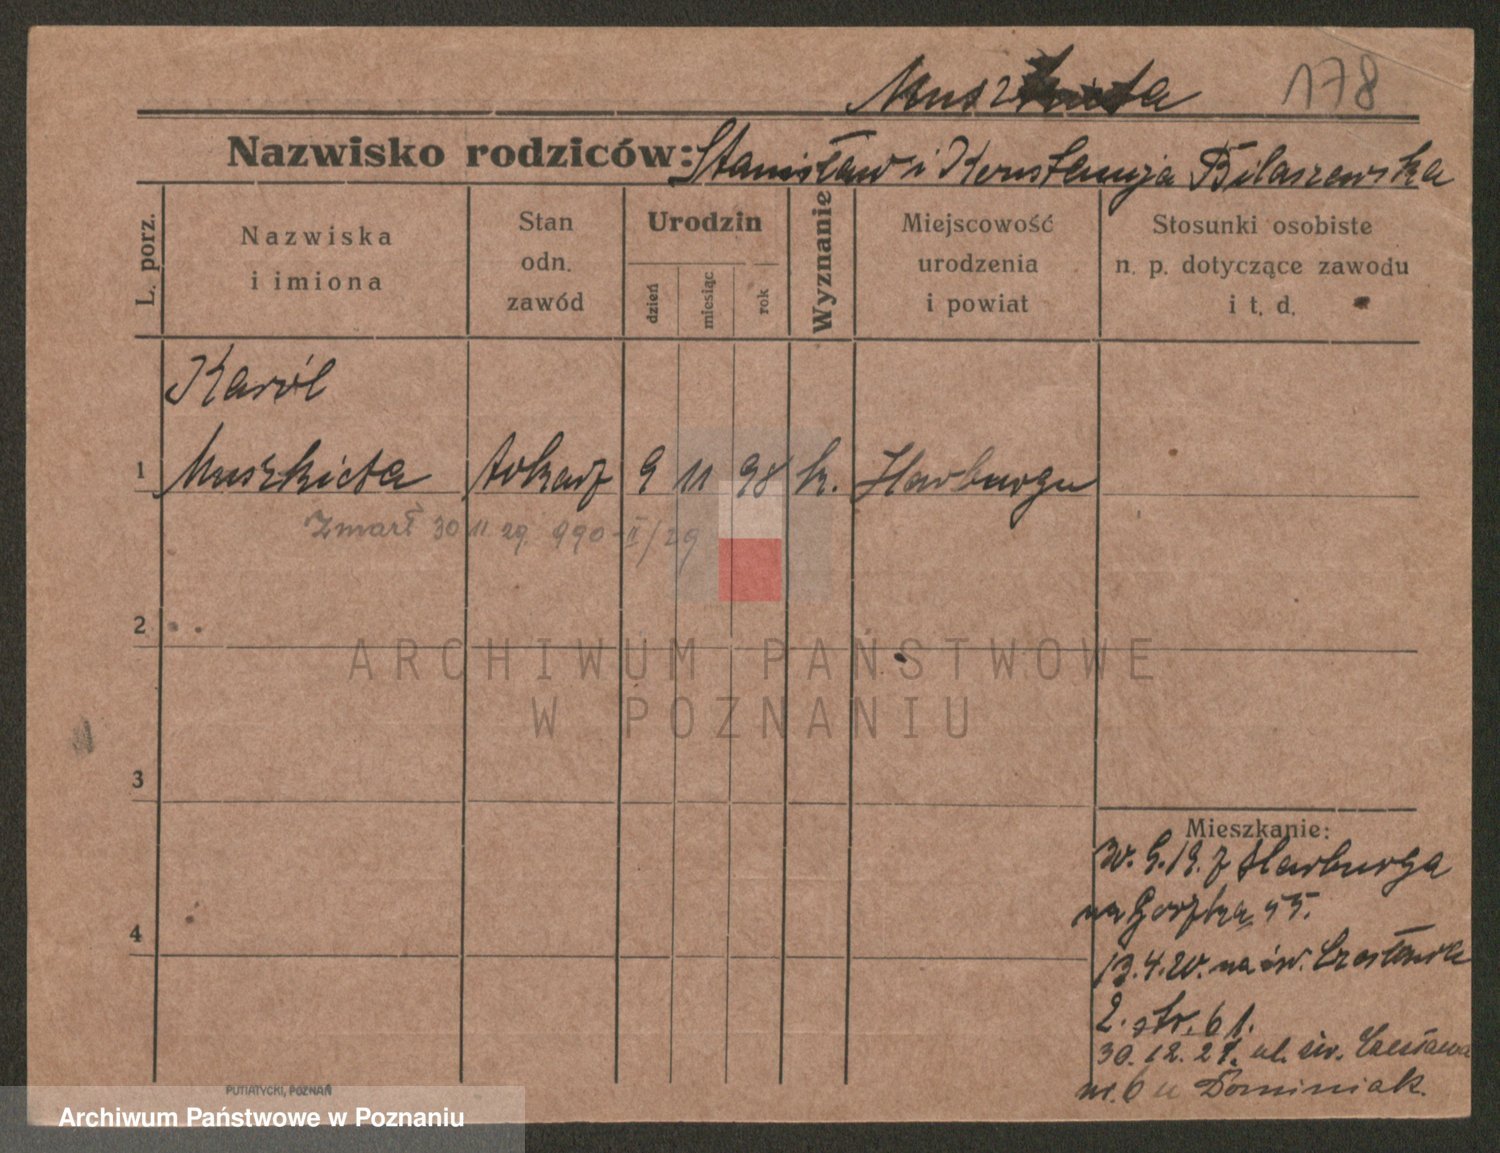 Muszkieta 178
Nazwisko rodziców: Stanisław i Konstancja Bilaszewska
L. porz.
Nazwiska
i imiona
Stan
odn.
zawód
Urodzin
dzień
miesiąc
rok
Wyznanie
Miejscowość
urodzenia
i powiat
Stosunki osobiste
n. p. dotyczące zawodu
i t. d.
Karól
1 Muszkieta tokarz 9 11 98 k. Harburgu
Zmarł 30 11 29. 990-II/29
2
ARCHIWUM PAŃSTWOWE
W POZNANIU
3
Mieszkanie:
19. z Harburga
na
4
13.4.20. na św. Czesława
2. str. 61.
30.12.21. ul. św. Czesława
nr. 6 u Dominiak.
PUTIATYCKI, POZNAŃ
Archiwum Państwowe w Poznaniu